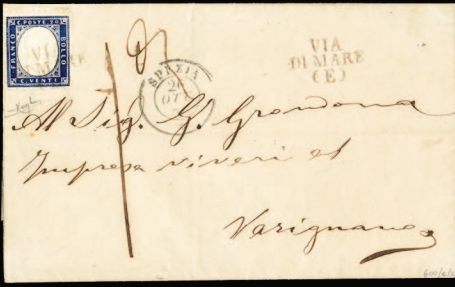 C. POSTE. 20
FRANCO
BOLLO
C. VENTI
VIA
DI MARE
(E)
SPEZIA
20
OTT
Al Sig. G. Grondona
Impresa viveri et
Varignano